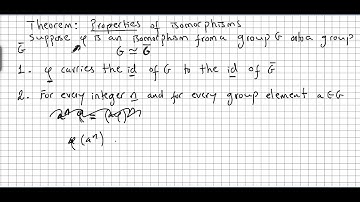 Theorem: Properties of isomorphisms
Suppose φ is an isomorphism from a group G onto a group
G̅ G ≃ G̅
1. φ carries the id of G to the id of G̅
2. For every integer n and for every group element a∈G
φ(aⁿ)